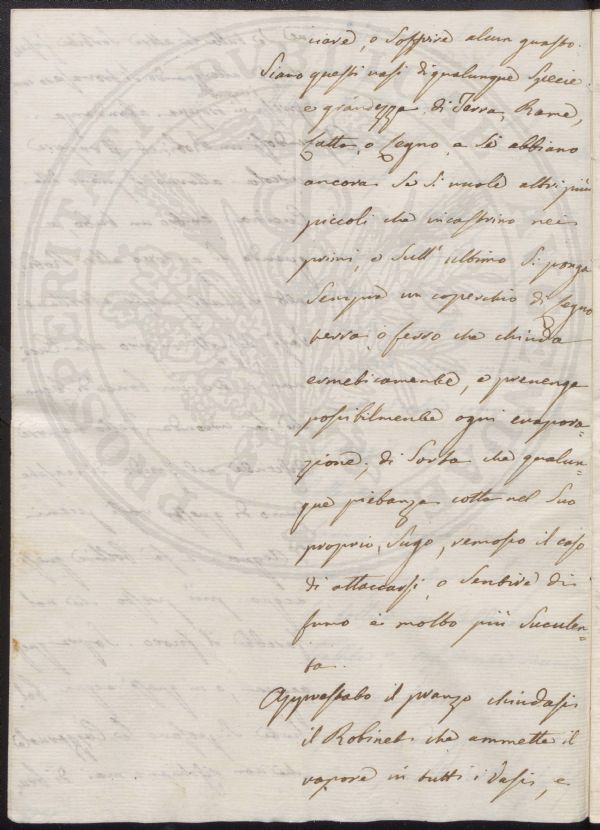 ciare, o soffrire alcun guasto.
Siano questi vasi di qualunque specie
e grandezza di Terra, Rame,
Latta, o Legno, a Se abbiano
ancora se si vuole altri più
piccoli che incastrino nei
primi, e sull' ultimo si ponga
sempre un coperchio di Legno
terra, o ferro che chiuda
ermeticamente, e prevenga
possibilmente ogni evapora=
zione; di sorta che qualun=
que pietanza cotta nel suo
proprio sugo, remosso il caso
di attaccarsi, o sentire di
fumo è molto più suculen=
ta.
Apprestato il pranzo chiudasi
il Robinet che ammette il
vapore in tutti i vasi, e
PROSPERITATI PUBLICAE